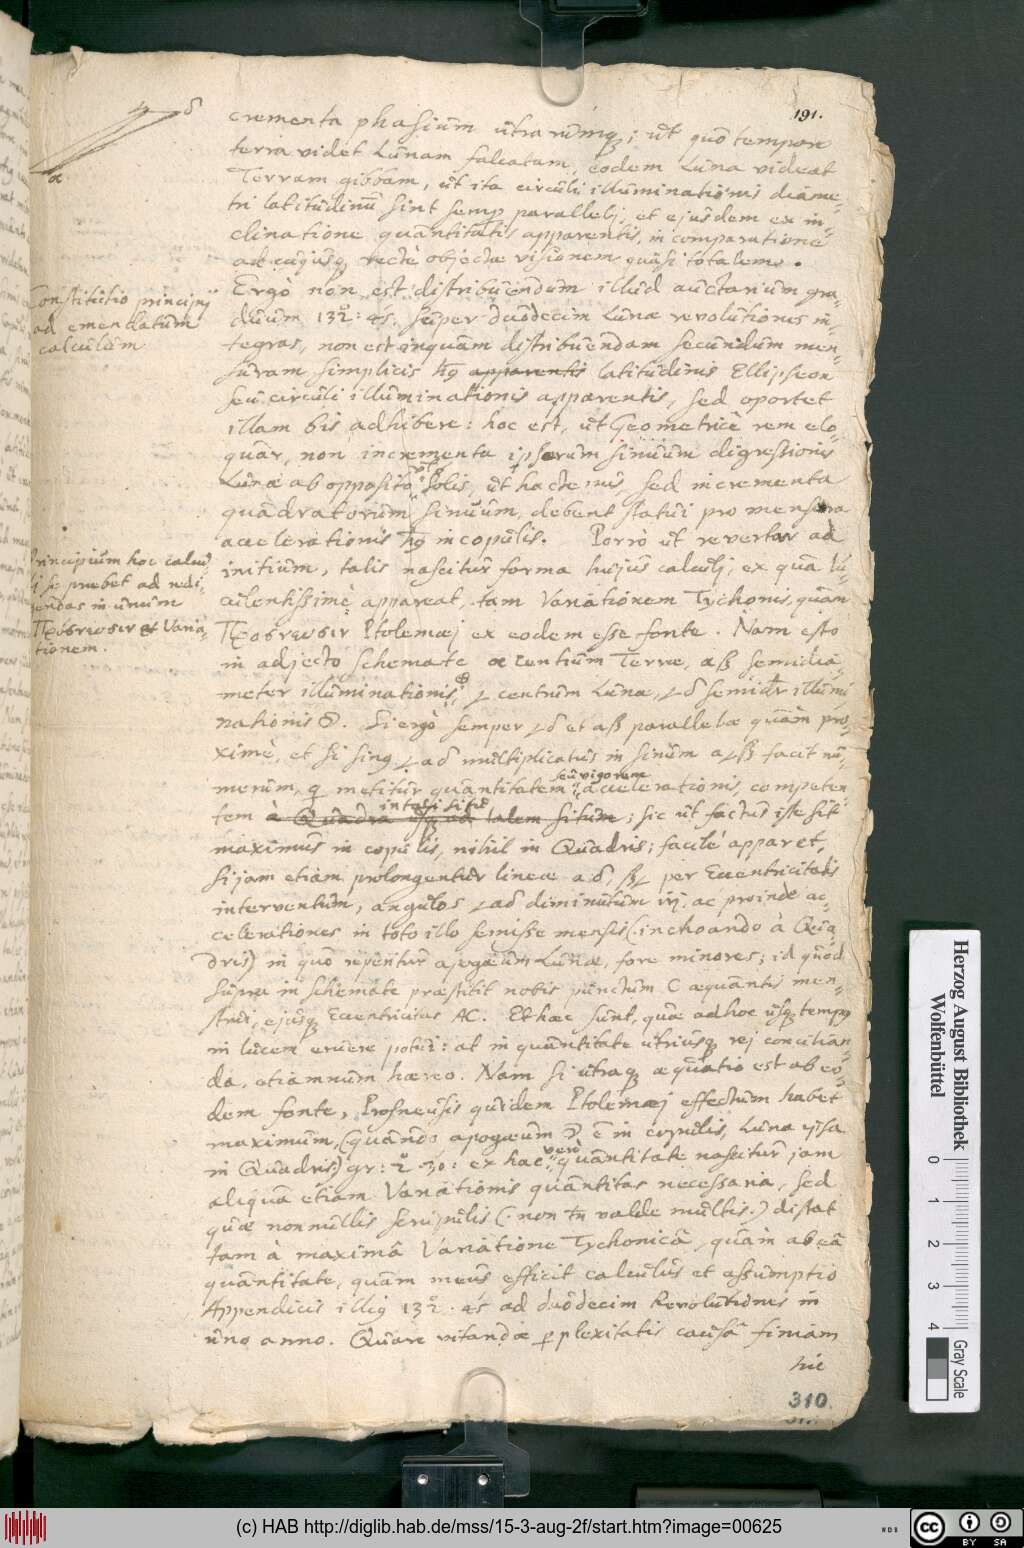 191.
γ δ
α
crementa phasium utrarumq; ut quo tempore
terra videt Lunam falcatam, eodem Luna videat
Terram gibbam, ut ita circuli illuminationis diame-
tri latitudinum sint semp parallelj, et ejusdem ex in-
clinatione quantitatis apparentis, in comparatione
ad cujusq recte objectae visionem quasi totalem.
Constitutio principij
ad emendatum
calculum
Ergò non est distribuendum illud auctarium gra-
duum 132°. 45. super duodecim Lunae revolutiones in-
tegras, non est inquam distribuendum secundum men-
suram simplicis apparentis latitudinis Ellipseon
seu circuli illuminationis apparentis, sed oportet
illam bis adhibere: hoc est, ut Geometricè rem elo-
quar, non incrementa ipsorum sinuum digressionis
Lunae ab opposito Solis, ut hactenus, sed incrementa
quadratorum sinuum, debent statui pro mensura
accelerationis in copulis. Porrò ut revertar ad
Principium hoc calcu-
li se praebet ad redi-
gendas in unum
Πρόσνευσιν et Varia-
tionem.
initium, talis nascitur forma hujus calculj, ex qua lu-
culentissimè appareat, tam Variationem Tychonis, quàm
Πρόσνευσιν Ptolemaej ex eodem esse fonte. Nam esto
in adjecto schemate α centrum Terrae, αβ semidia-
meter illuminationis ⊕, γ centrum Lunae, γδ semidr illumi-
nationis ☽. Si ergò semper γδ et αβ parallelae quàm pro-
ximè, et si sing γαδ multiplicatus in sinum αγβ facit nu-
merum, q metitur quantitatem seu vigorem accelerationis, competen-
tem à Quadra usq ad talem situm in tali situ; sic ut factus iste sit
maximus in copulis, nihil in Quadris; facilè apparet,
si jam etiam prolongentur lineae αδ, βγ per Eccentricitatis
interventum, angulos γαδ diminutum irj, ac proinde ac-
celerationes in toto illo semisse mensis (inchoando à Qua-
dris) in quo reperitur apogaeum Lunae, fore minores; id quod
supra in schemate praestitit nobis punctum C aequantis men-
strui, ejusq Eccentricitas AC. Et haec sunt, quae adhoc usq tempq
in lucem eruere potui: at in quantitate utriusq rej concilian-
da, etiamnum haereo. Nam si utraq aequatio est ab eo-
dem fonte, Prosneusis quidem Ptolemaej effectum habet
maximum, (quando apogaeum ☽ ē in copulis, Luna ipsa
in Quadris) gr: 2° 30: ex hac vero quantitate nascitur jam
aliqua etiam Variationis quantitas necessaria, sed
quae nonnullis scripulis (non tn valde multis) distat
tam à maximâ Variatione Tychonicâ, quàm ab eâ
quantitate, quam meus efficit calculus et assumptio
Appendicis illiq 132°. 45 ad duodecim Revolutiones in
uno anno. Quare vitandae pplexitatis causâ finiam
hic
310
Herzog August Bibliothek
Wolfenbüttel
0 1 2 3 4
Gray Scale
(c) HAB http://diglib.hab.de/mss/15-3-aug-2f/start.htm?image=00625
WDB
CC BY SA